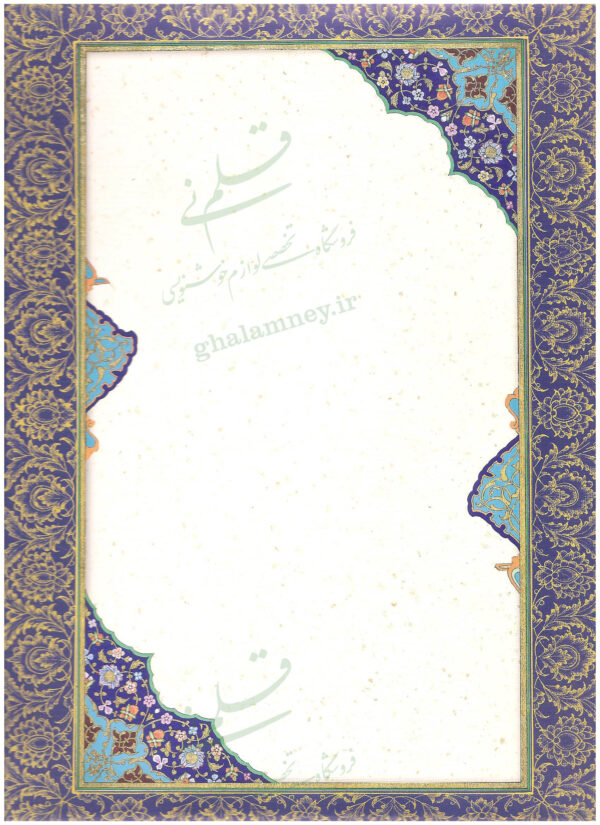 قلم نی
فروشگاه تخصصی لوازم خوشنویسی
ghalamney.ir
قلم نی
فروشگاه تخصصی